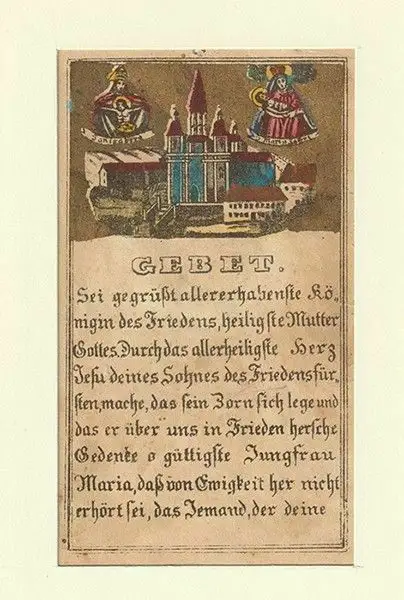 GEBET.
Sei gegrüßt allererhabenste Kö-
nigin des Friedens, heiligste Mutter
Gottes. Durch das allerheiligste Herz
Jesu deines Sohnes des Friedensfür,
sten, mache, das sein Zorn sich lege und
das er über uns in Frieden hersche
Gedenke o güttigste Jungfrau
Maria, daß von Ewigkeit her nicht
erhört sei, das Jemand, der deine